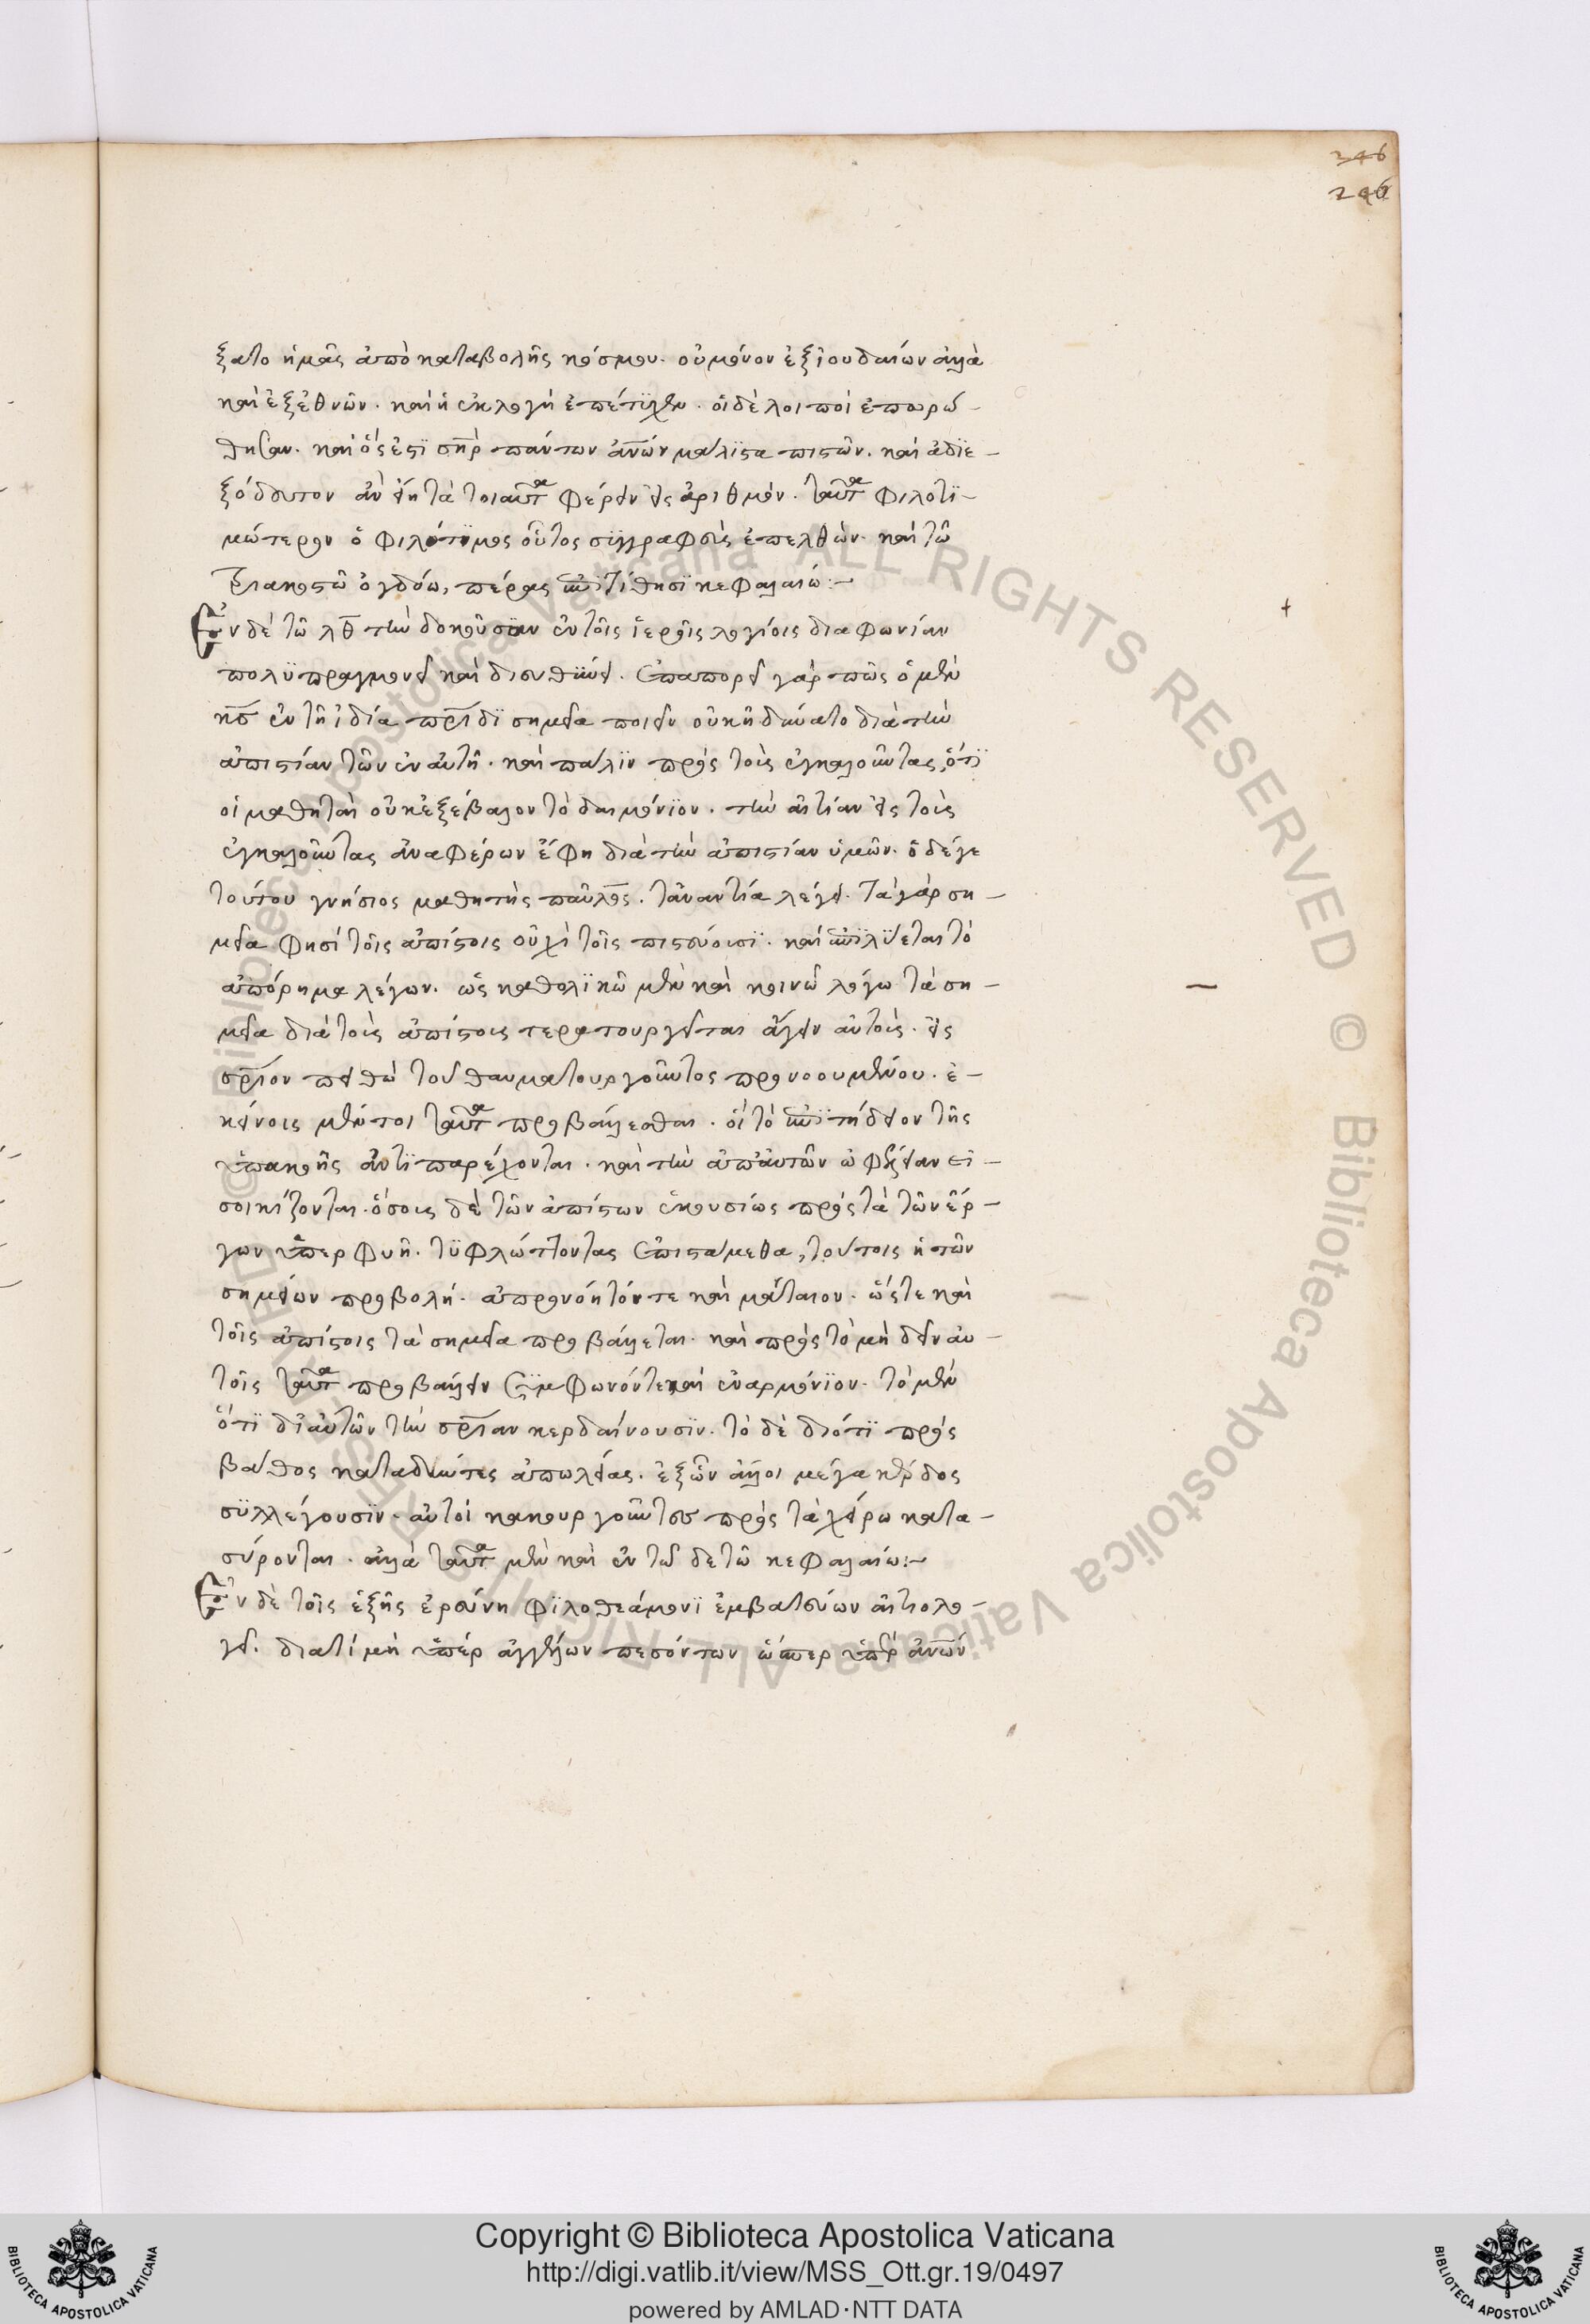 346
246
ξατο ἡμᾶς ἀπὸ καταβολῆς κόσμου. οὐ μόνον ἐξ ἰουδαίων ἀλλὰ
καὶ ἐξ ἐθνῶν. καὶ ἡ ἐκλογὴ ἐπέτυχεν. οἱ δὲ λοιποὶ ἐπωρώ-
θησαν. καὶ ὅς ἐστι σὴρ πάντων ἀνῶν μάλιστα πιστῶν. καὶ ἀδιε-
ξόδευτον ἂν εἴη τὰ τοιαῦτα φέρειν εἰς ἀριθμόν. ταῦτα φιλοτι-
μώτερον ὁ φιλότιμος οὗτος συγγραφεὺς ἐπελθὼν. καὶ τῶ
τριακοστῶ ὀγδόω, πέρας ἐπιτίθησι κεφαλαίω:-
Ἐν δὲ τῶ λθ τὴν δοκοῦσαν ἐν τοῖς ἱεροῖς λογίοις διαφωνίαν
πολυπραγμονεῖ καὶ διευθύνει. ἐπαπορεῖ γὰρ πῶς ὁ μὲν
κς ἐν τῆ ἰδία πρίδι σημεῖα ποιεῖν οὐκ ἠδύνατο διὰ τὴν
ἀπιστίαν τῶν ἐν αὐτῆ. καὶ πάλιν πρὸς τοὺς ἐγκαλοῦντας, ὅτι
οἱ μαθηταὶ οὐκ ἐξέβαλον τὸ δαιμόνιον. τὴν αἰτίαν εἰς τοὺς
ἐγκαλοῦντας ἀναφέρων ἔφη διὰ τὴν ἀπιστίαν ὑμῶν. ὁ δέ γε
τούτου γνήσιος μαθητὴς παῦλος. τἀναντία λέγει. τὰ γὰρ ση-
μεῖα φησὶ τοῖς ἀπίστοις οὐχὶ τοῖς πιστεύουσι. καὶ ἐπιλύεται τὸ
ἀπόρημα λέγων. ὡς καθολικῶ μὲν καὶ κοινῶ λόγω τὰ ση-
μεῖα διὰ τοὺς ἀπίστους τερατουργεῖται ἄγειν αὐτοὺς. εἰς
σρίον πειθὼ τοῦ θαυματουργοῦντος προνοουμένου. ἐ-
κείνοις μέντοι ταῦτα προβάλλεσθαι. οἳ τὸ ἐπιτήδειον τῆς
ὑπακοῆς ἀντιπαρέχονται. καὶ τὴν ἀπ' αὐτῶν ὠφέλειαν εἰ-
σοικίζονται. ὅσους δὲ τῶν ἀπίστων ἑκουσίως πρὸς τὰ τῶν ἔρ-
γων ὑπερφυῆ. τυφλώττοντας ἐπιστάμεθα, τούτοις ἡ τῶν
σημείων προβολή. ἀπρονόητόν τε καὶ μάταιον. ὥστε καὶ
τοῖς ἀπίστοις τὰ σημεῖα προβάλλεται. καὶ πρὸς τὸ μὴ δεῖν αὐ-
τοῖς ταῦτα προβάλλειν σύμφωνόν τε καὶ ἐναρμόνιον. τὸ μὲν
ὅτι δι' αὐτῶν τὴν σρίαν κερδαίνουσιν. τὸ δὲ διότι πρὸς
βάθος καταδύντες ἀπωλείας. ἐξ ὧν ἄλλοι μέγα κέρδος
συλλέγουσιν. αὐτοὶ κακουργοῦντες πρὸς τὰ χείρω κατα-
σύρονται. ἀλλὰ ταῦτα μὲν καὶ ἐν τῶδε τῶ κεφαλαίω:-
Ἐν δὲ τοῖς ἑξῆς ἐρεύνη φιλοθεάμονι ἐμβατεύων αἰτιολο-
γεῖ. διατί μὴ ὑπὲρ ἀγγέλων πεσόντων ὥσπερ ὑπὲρ ἀνῶν
Copyright © Biblioteca Apostolica Vaticana
http://digi.vatlib.it/view/MSS_Ott.gr.19/0497
powered by AMLAD·NTT DATA